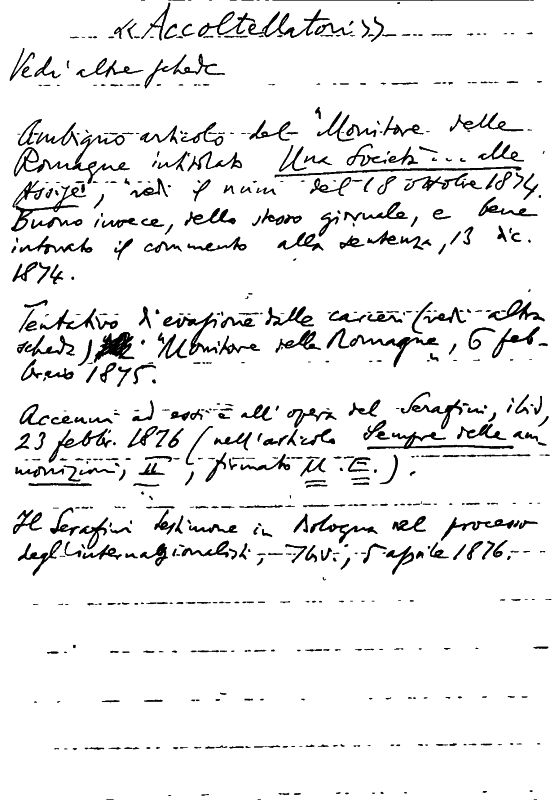 « Accoltellatori »
Vedi altre schede
Ambiguo articolo del "Monitore delle
Romagne intitolato Una Società... alle
Assise", vedi il num del 18 ottobre 1874.
Buono invece, dello stesso giornale, e bene
intonato il commento alla sentenza, 13 dic.
1874.
Tentativo d'evasione dalle carceri (vedi altra
scheda) "Monitore delle Romagne", 6 feb-
braio 1875.
Accenni ad essi e all'opera del Serafini, ibid,
23 febbr. 1876 (nell'articolo Sempre delle am
monizioni, II, firmato M. E.).
Il Serafini testimone in Bologna nel processo
degli internazionalisti, Ibid., 5 aprile 1876.